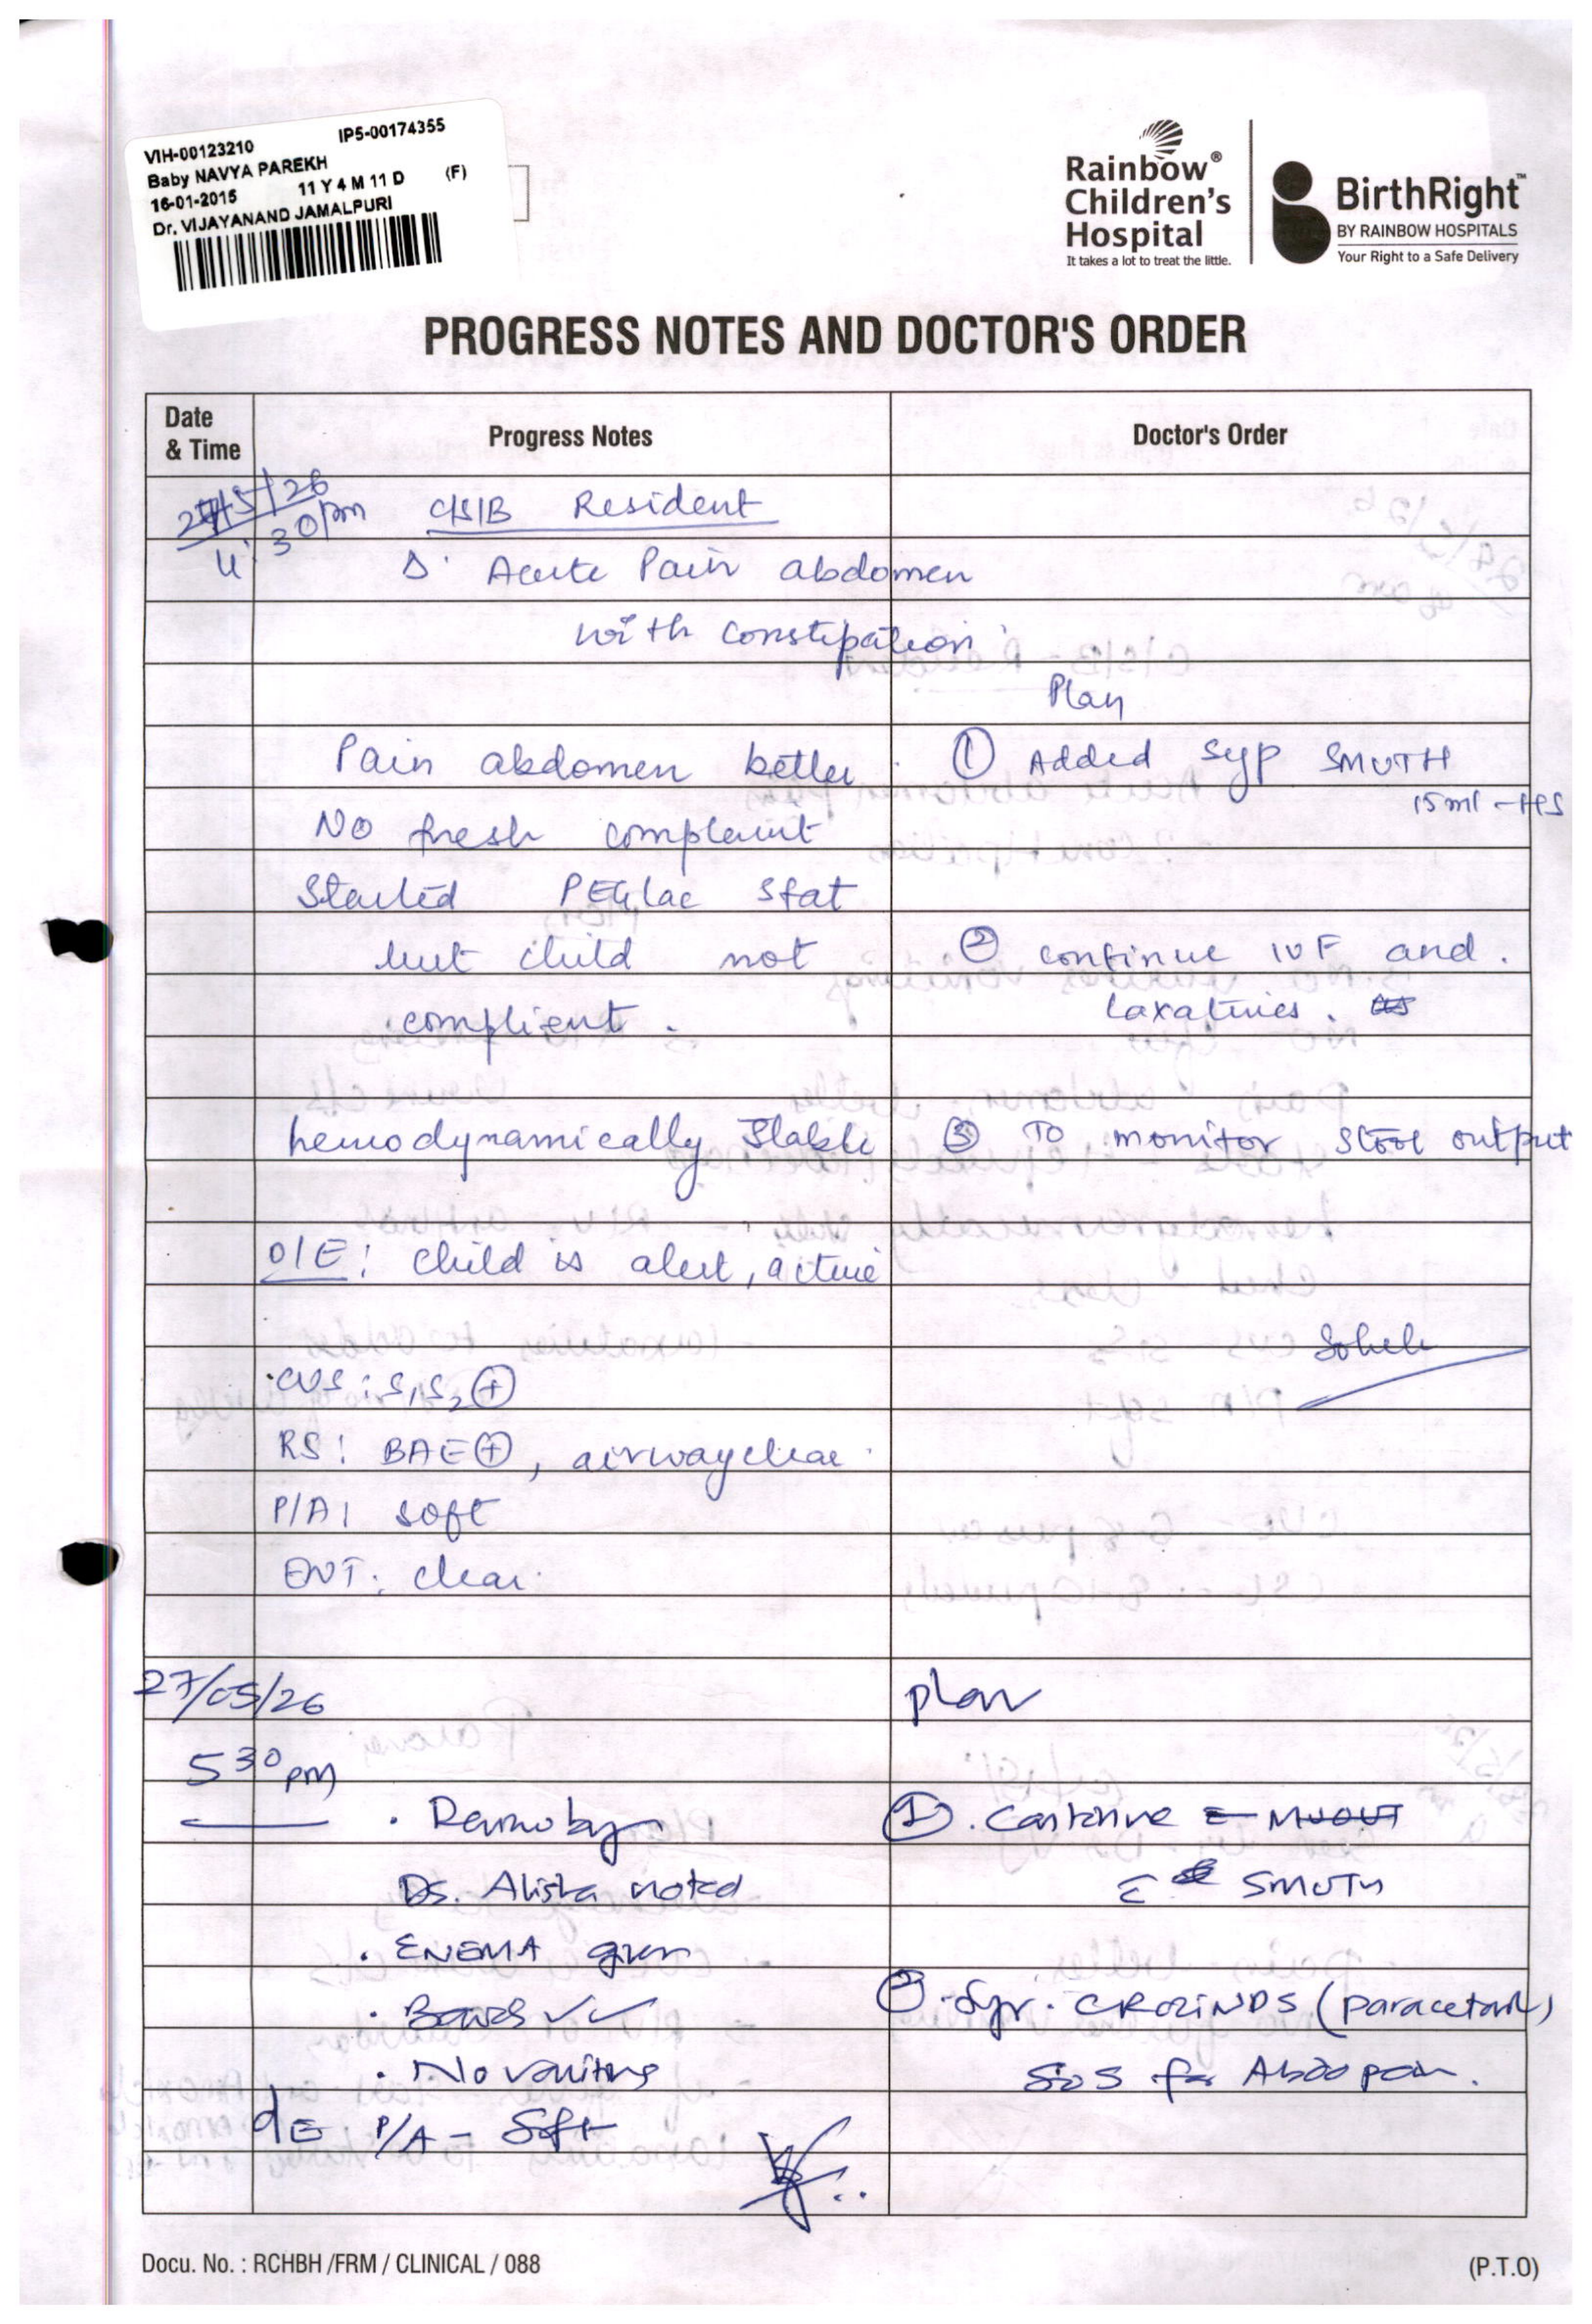 VIH-00123210 IP5-00174355
Baby NAVYA PAREKH
16-01-2015 11 Y 4 M 11 D (F)
Dr. VIJAYANAND JAMALPURI
Rainbow®
Children's
Hospital
It takes a lot to treat the little.
BirthRight™
BY RAINBOW HOSPITALS
Your Right to a Safe Delivery
PROGRESS NOTES AND DOCTOR'S ORDER
Date & Time Progress Notes Doctor's Order
27/5/26
4:30pm
C/S/B Resident
Δ: Acute Pain abdomen
with constipation
Plan
Pain abdomen better
① Added Syp SMUTH
15ml - HS
No fresh complaint
Started PEGlac stat
but child not
complient.
② continue IVF and
laxatives.
hemodynamically stable
③ To monitor stool output
O/E: child is alert, active
CVS: S1S2 ⊕
RS: BAE⊕, airway clear
P/A: soft
ENT: clear
27/05/26
5 30 pm
plan
Ds. Alista noted
. ENEMA given
. No vomiting
O/E P/A - Soft
①. Continue
c̄ SMUTH
②. Syr. CROCIN DS (paracetamol)
SOS for Abdo pain.
Docu. No. : RCHBH /FRM / CLINICAL / 088 (P.T.O)